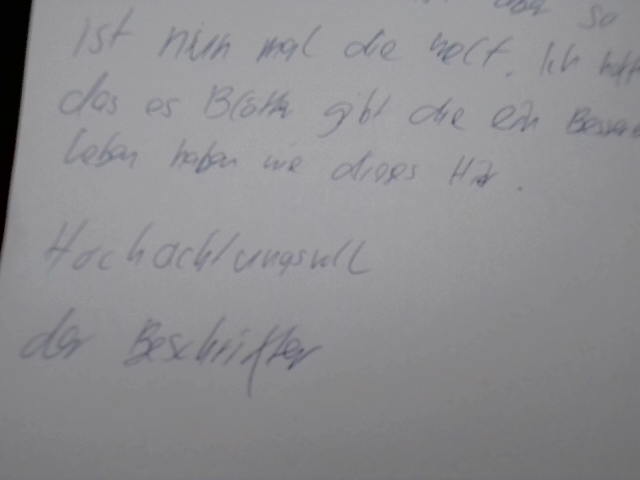 aber so
Ist nun mal die welt. Ich hoff
das es Blätter gibt die ein Besseres
leben haben wie dieses Hir.
Hochachtungsvoll
der Beschrifter